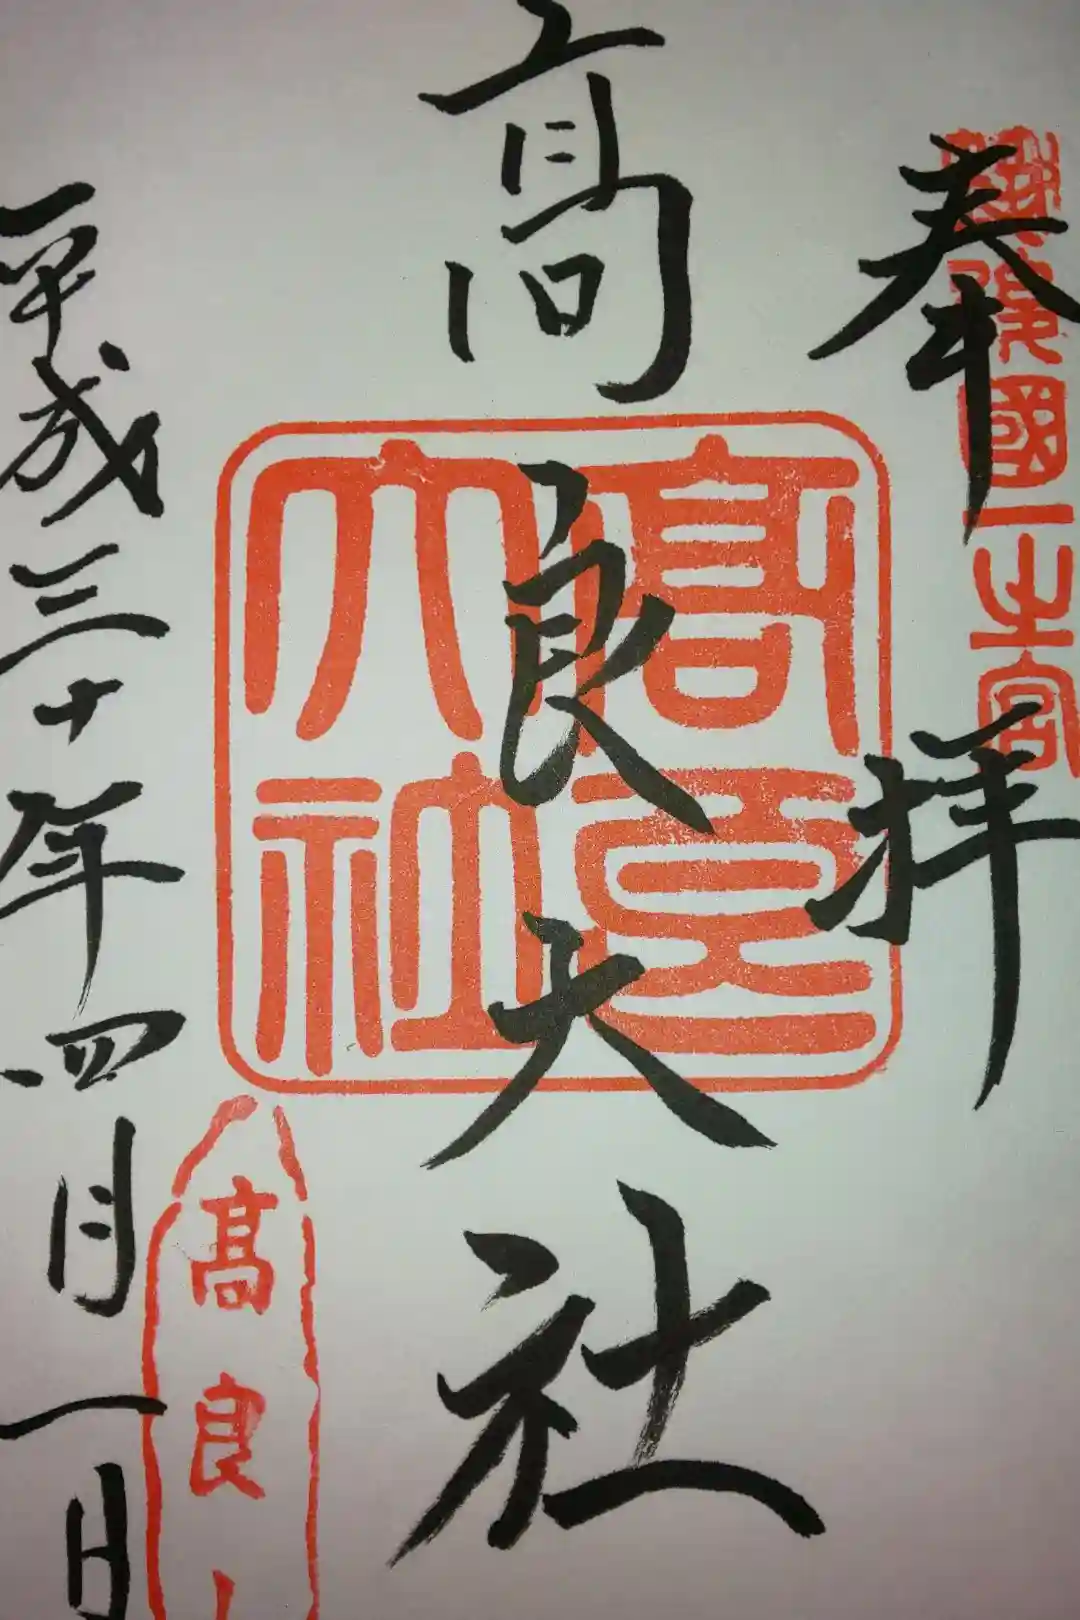 奉拝
筑後國一之宮
髙良大社
髙良大社
平成三十年四月一日
髙良山